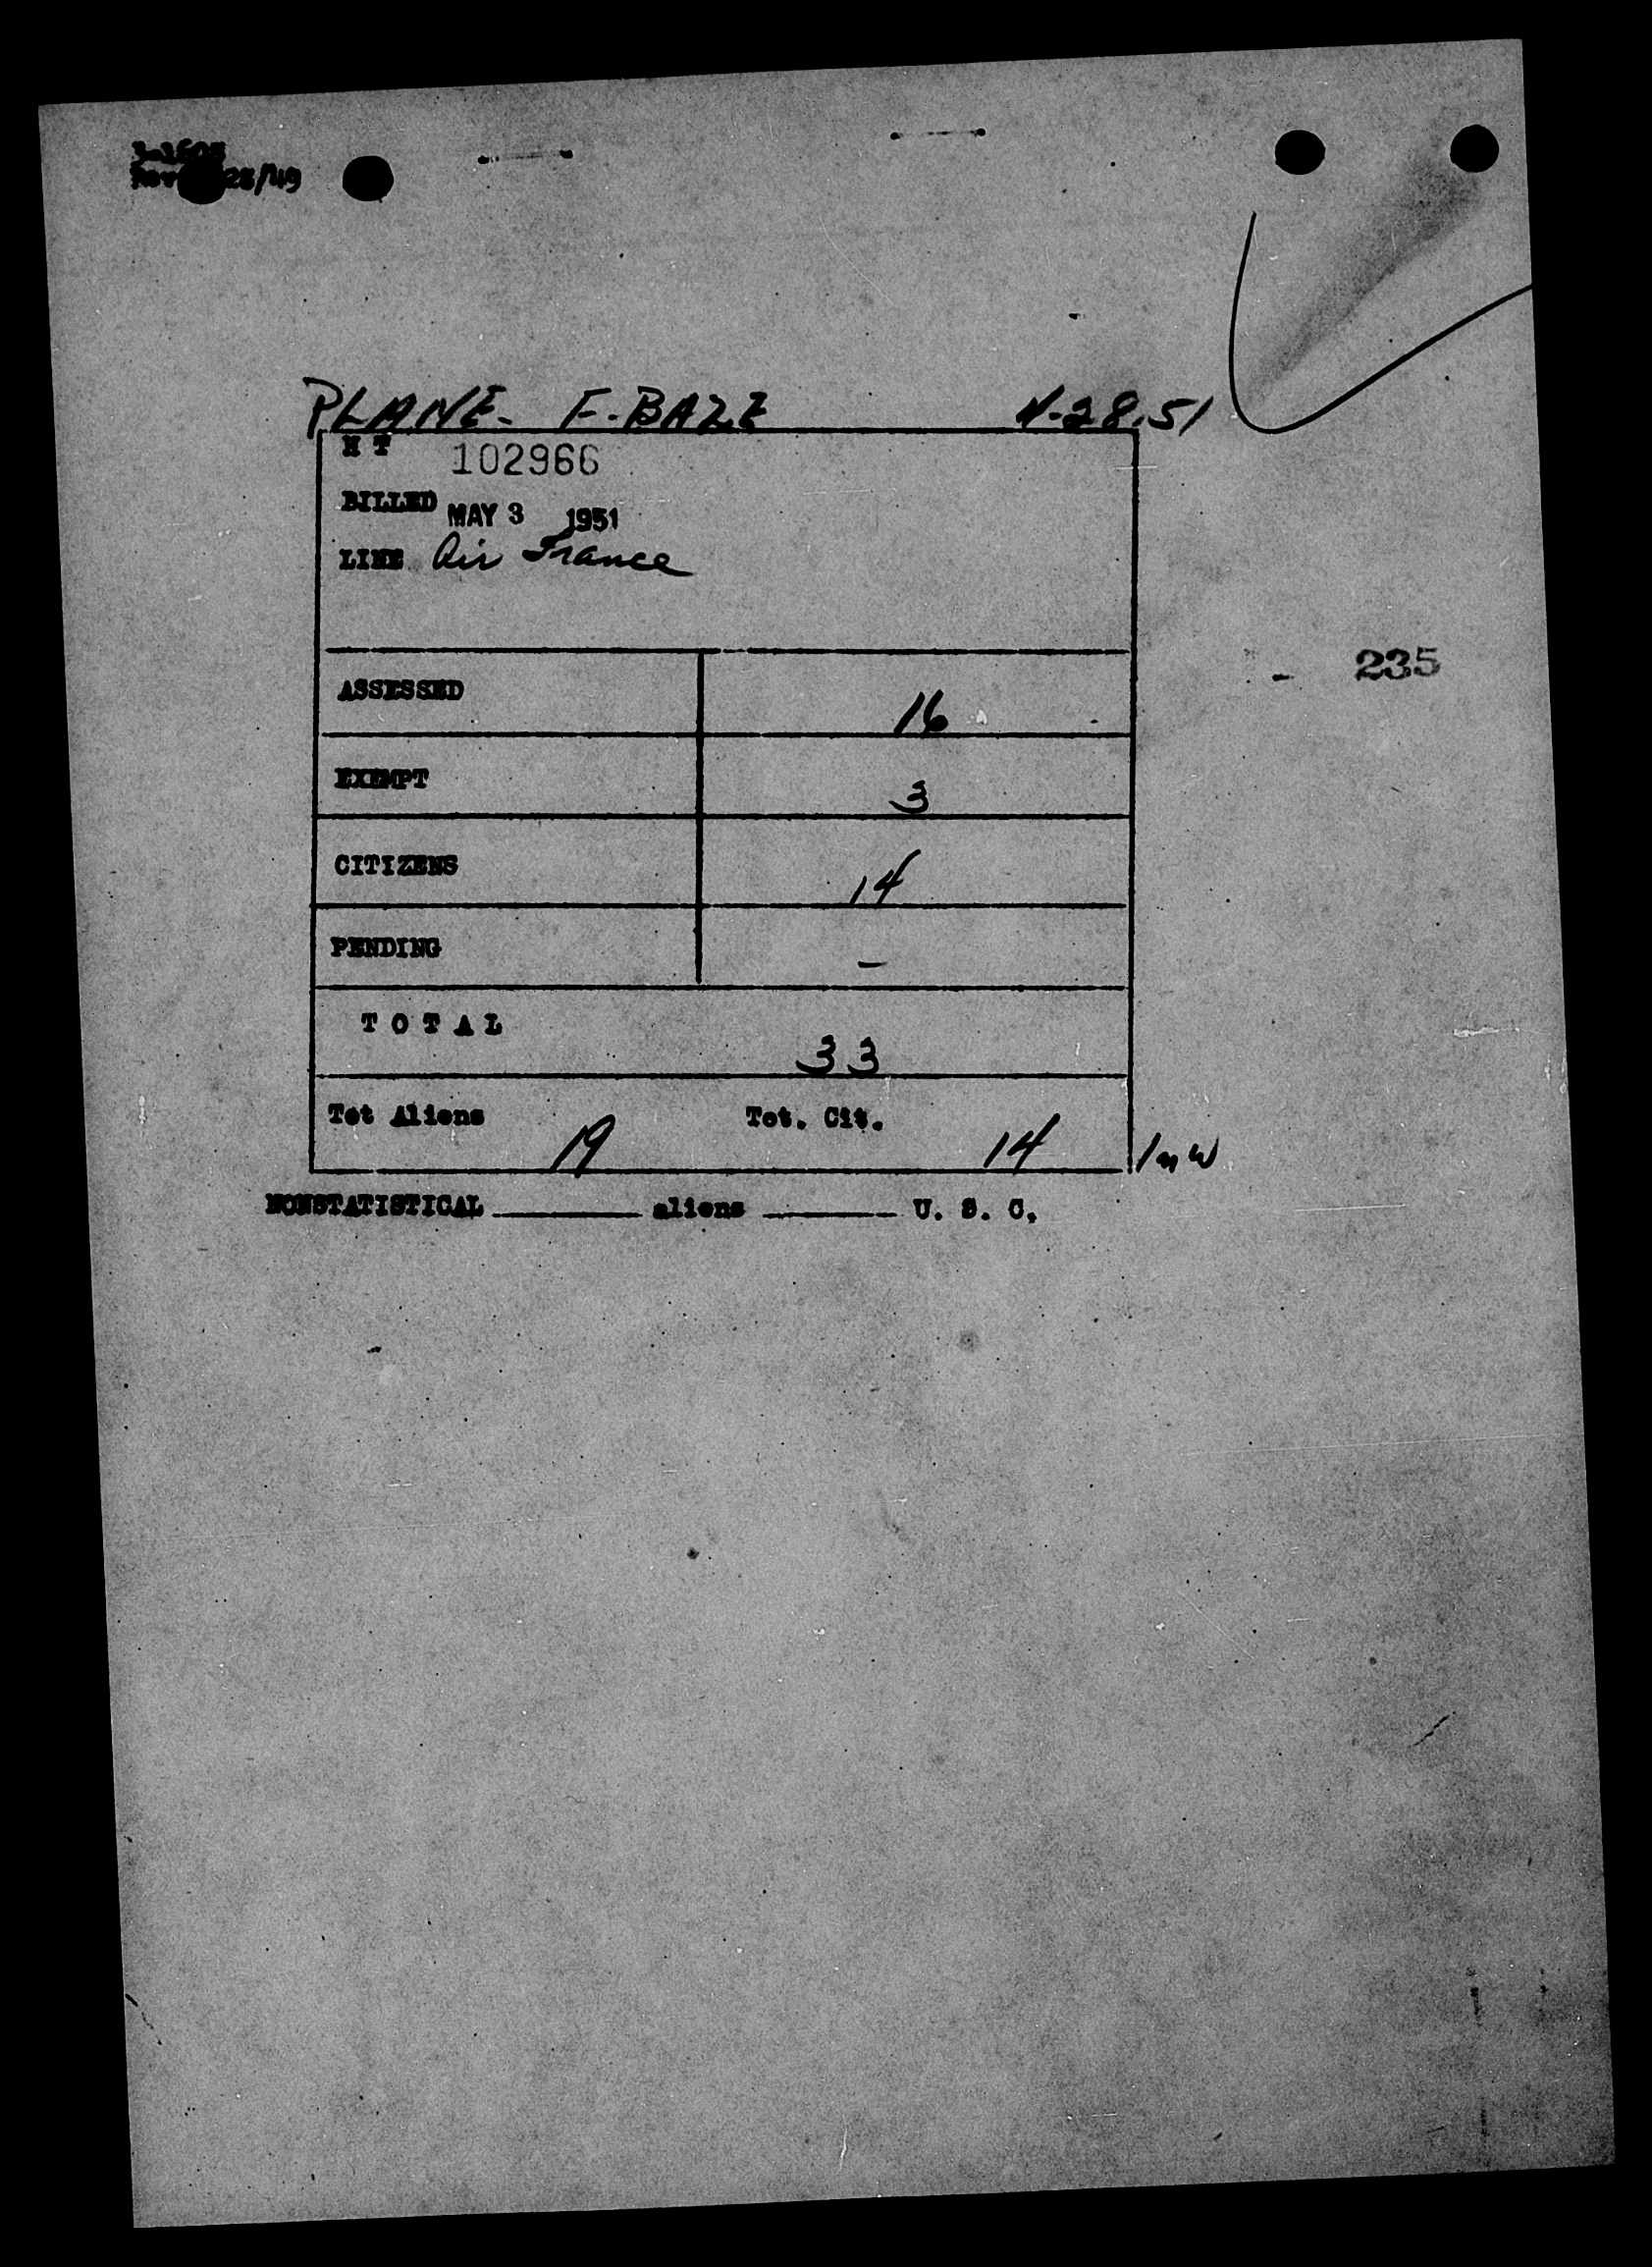 28/49
PLANE- F-BAZE 4-28.51
H T 102966
BILLED MAY 3 1951
LINE Air France
- 235
ASSESSED 16
EXEMPT 3
CITIZENS 14
PENDING -
TOTAL 33
Tot Aliens 19 Tot. Cit. 14
NONSTATISTICAL ______ aliens ______ U. S. C.